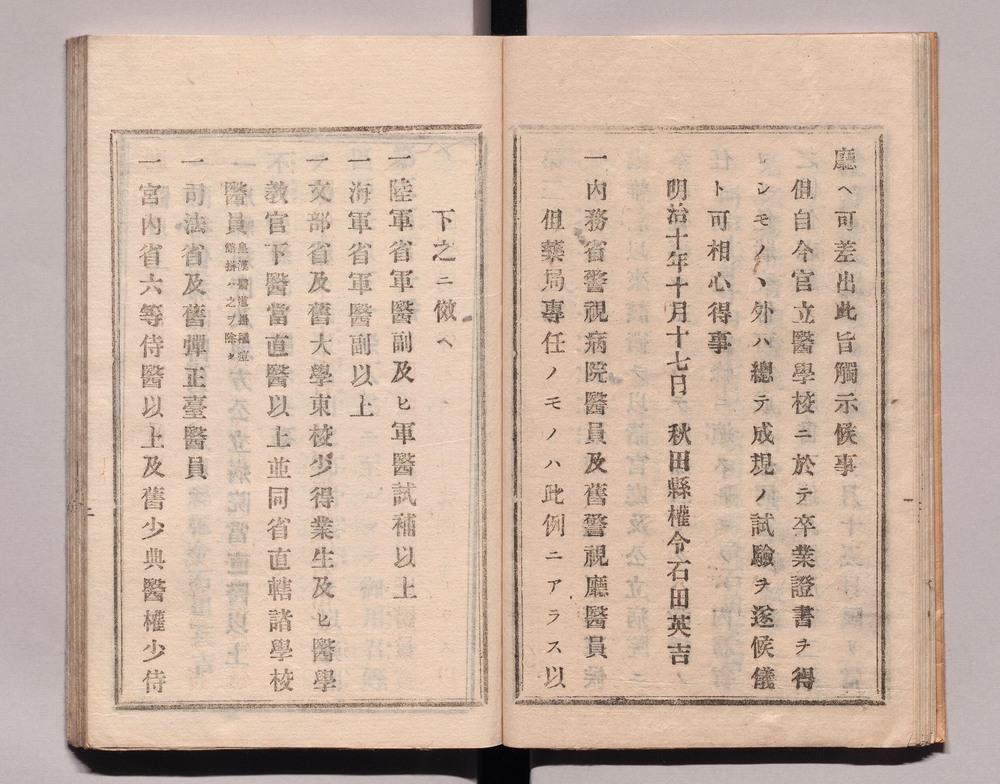 廳ヘ可差出此旨觸示候事
但自今官立醫學校ニ於テ卒業證書ヲ得
シモノヽ外ハ總テ成規ノ試驗ヲ遂候儀
ト可相心得事
明治十年十月十七日 秋田縣權令石田英吉
一內務省警視病院醫員及舊警視廳醫員
但藥局專任ノモノハ此例ニアラス以
下之ニ倣ヘ
一陸軍省軍醫副及ヒ軍醫試補以上
一海軍省軍醫副以上
一文部省及舊大學東校少得業生及ヒ醫學
敎官下醫當直醫以上並同省直轄諸學校
醫員皇漢醫道掛種痘館掛ハ之ヲ除ク
一司法省及舊彈正臺醫員
一宮內省六等侍醫以上及舊少典醫權少侍
二